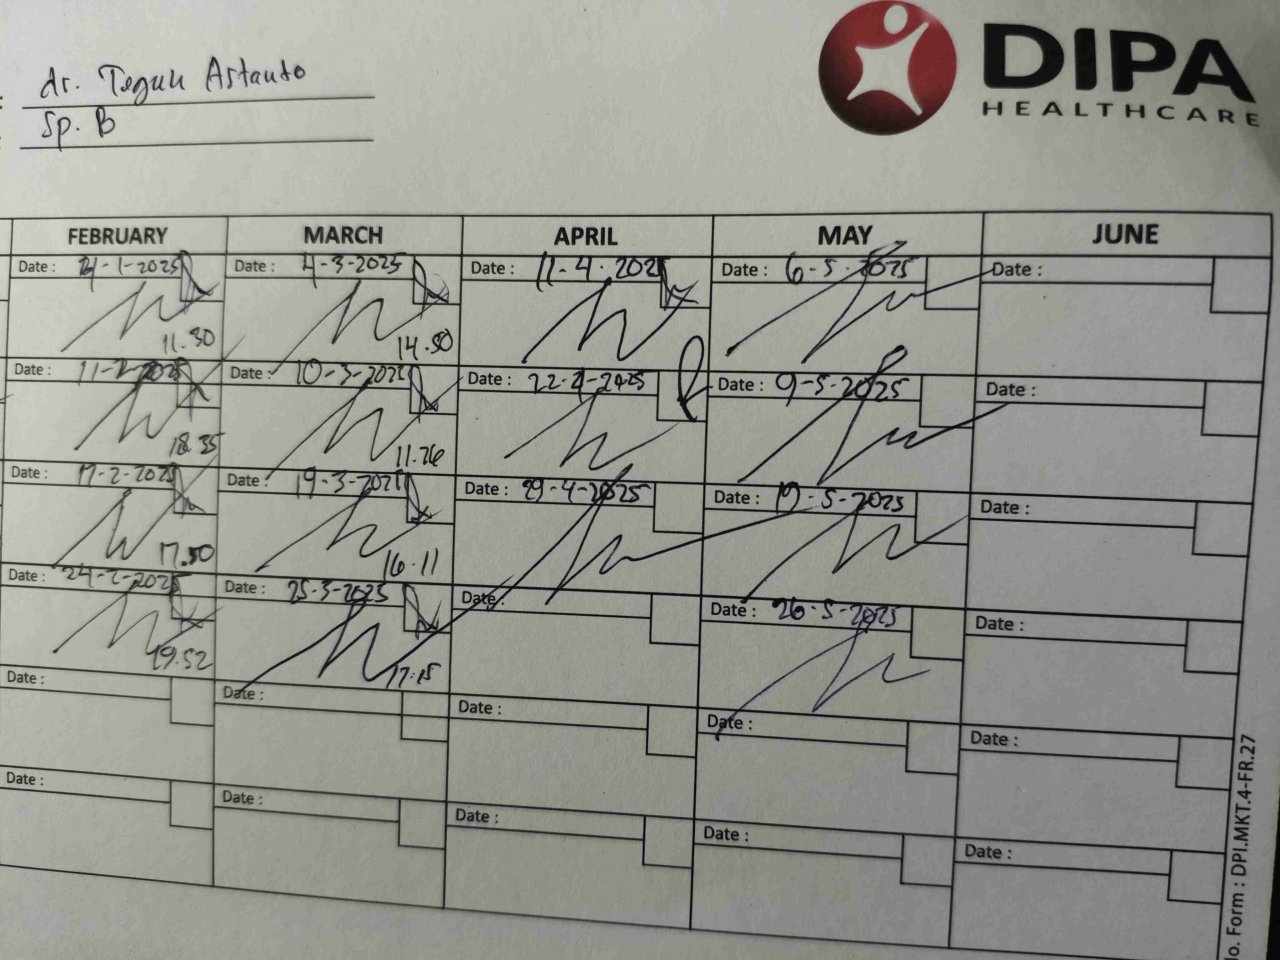 dr. Teguh Astanto
Sp. B
DIPA
HEALTHCARE
FEBRUARY MARCH APRIL MAY JUNE
Date : 21-1-2025 Date : 4-3-2025 Date : 11-4-2025 Date : 6-5-2025 Date :
11.30 14.50
Date : 11-2-2025 Date : 10-3-2025 Date : 22-4-2025 Date : 9-5-2025 Date :
18.35 11.26
Date : 17-2-2025 Date : 19-3-2025 Date : 29-4-2025 Date : 19-5-2025 Date :
17.50 16.11
Date : 24-2-2025 Date : 25-3-2025 Date : Date : 26-5-2025 Date :
19.52 17.15
Date : Date : Date : Date : Date :
Date : Date : Date : Date : Date :
No. Form : DPI.MKT.4-FR.27